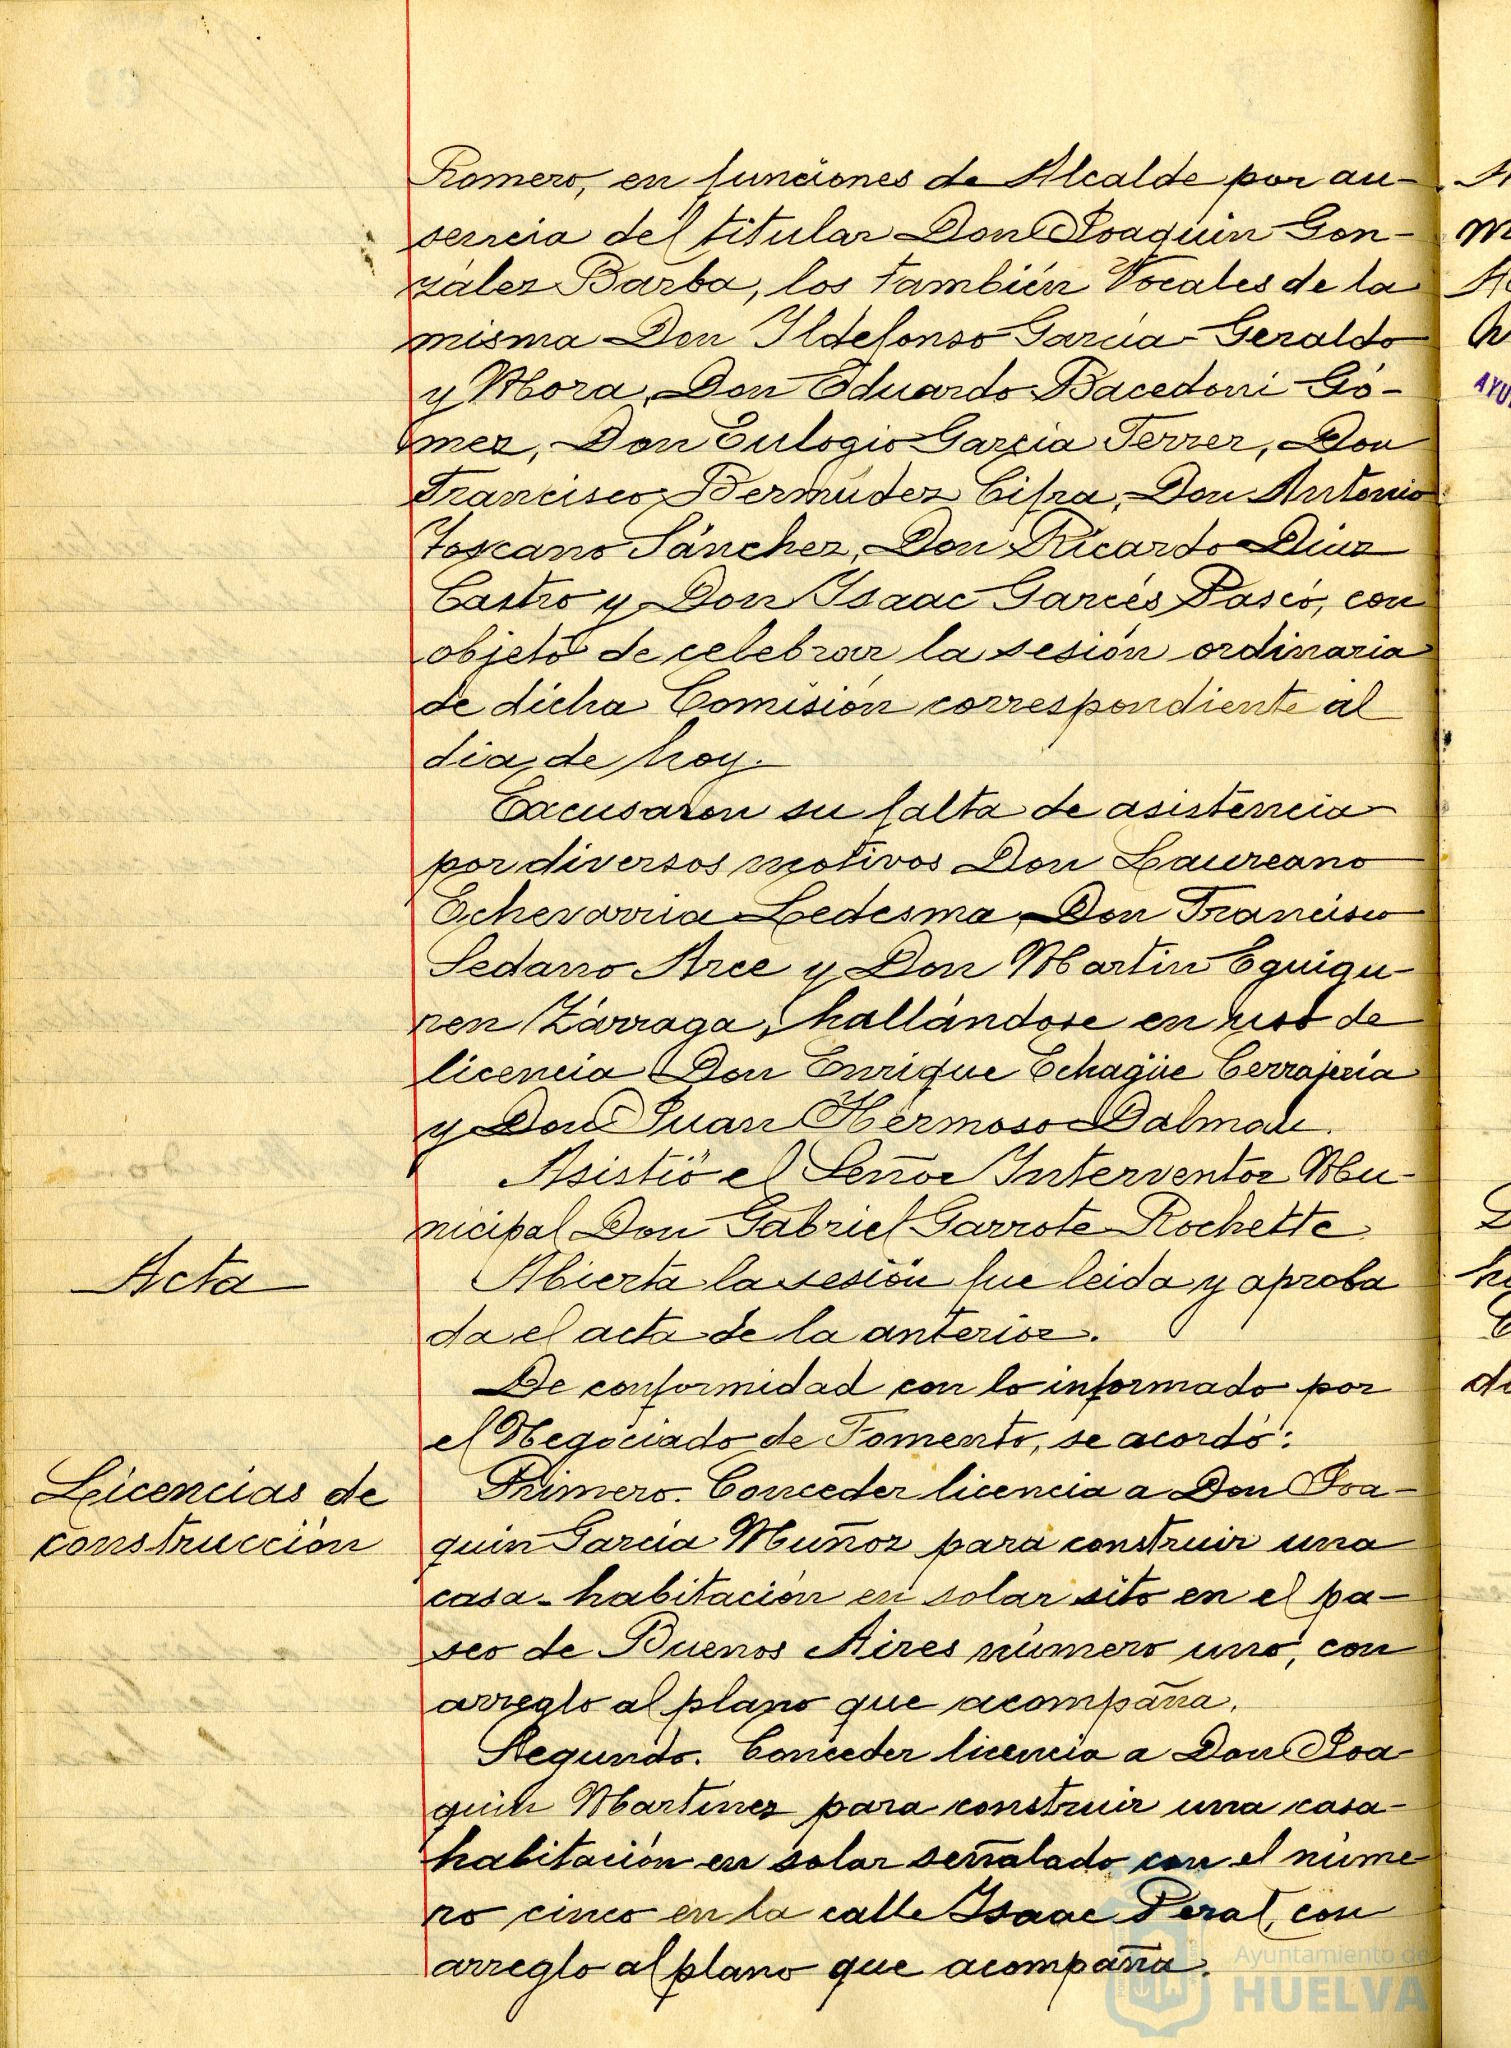 Romero, en funciones de Alcalde por au-
sencia del titular Don Joaquin Gon-
zález Barba, los también Vocales de la
misma Don Ildefonso Garcia-Geraldo
y Mora, Don Eduardo Bacedoni Gó-
mez, Don Eulogio Garcia Ferrer, Don
Francisco Bermúdez Cifra, Don Antonio
Toscano Sánchez, Don Ricardo Diaz
Castro y Don Isaac Garcés Pasció, con
objeto de celebrar la sesión ordinaria
de dicha Comisión correspondiente al
dia de hoy.
Excusaron su falta de asistencia
por diversos motivos Don Laureano
Echevarria Ledesma, Don Francisco
Sedano Arce y Don Martin Eguigu-
ren Zárraga, hallándose en uso de
licencia Don Enrique Echagüe Cerrajeria
y Don Juan Hermoso Dalmau.
Asistió el Señor Interventor Mu-
nicipal Don Gabriel Garrote Rochette.
Acta
Abierta la sesión fue leida y aproba
da el acta de la anterior.
De conformidad con lo informado por
el Negociado de Fomento, se acordó:
Licencias de
construcción
Primero. Conceder licencia a Don Joa-
quin Garcia Muñoz para construir una
casa-habitación en solar sito en el pa-
seo de Buenos Aires número uno, con
arreglo al plano que acompaña.
Segundo. Conceder licencia a Don Joa-
quin Martinez para construir una casa-
habitación en solar señalado con el núme-
ro cinco en la calle Isaac Peral, con
arreglo al plano que acompaña.
Ayuntamiento de
HUELVA